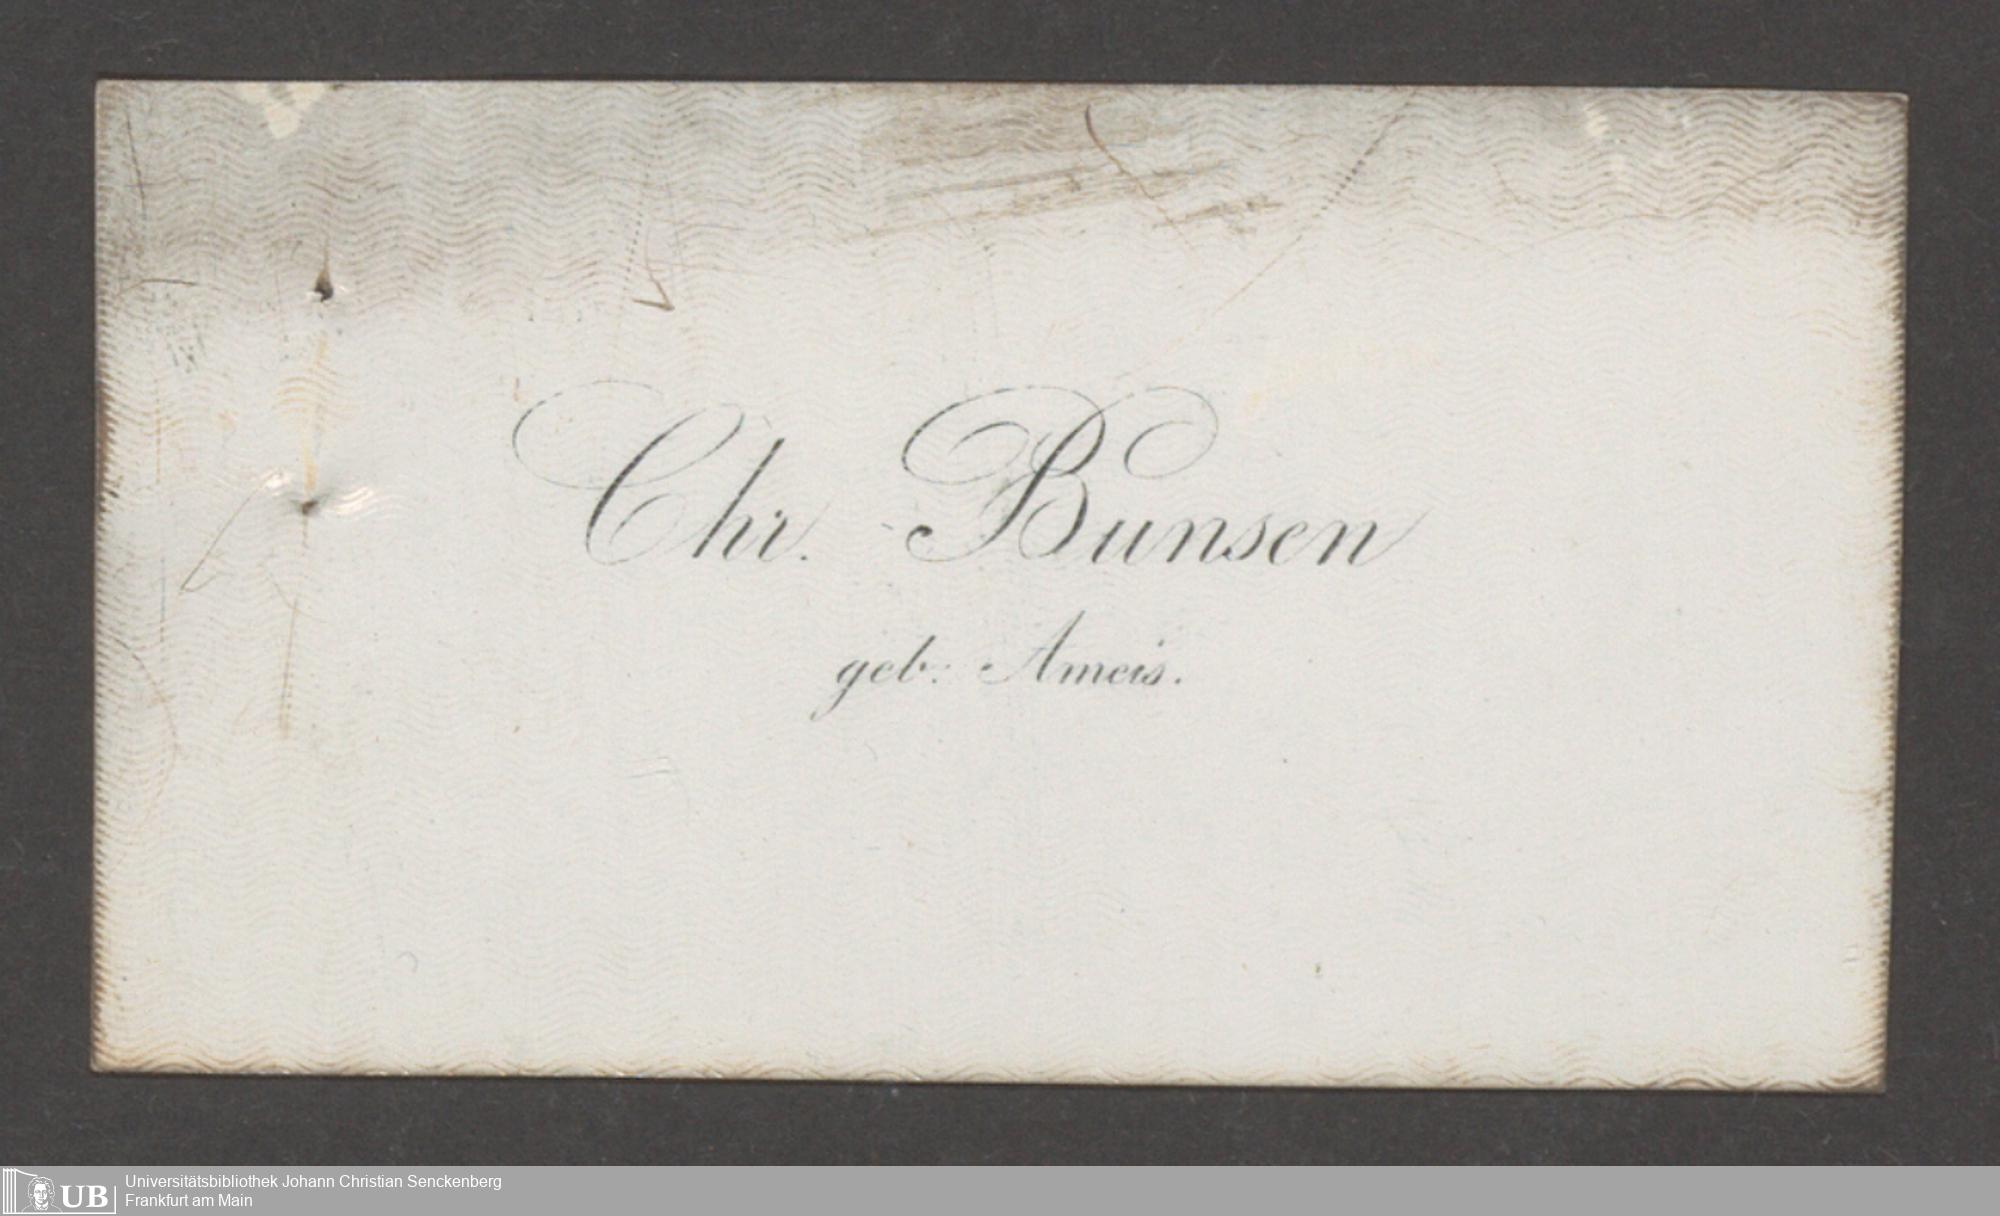 Chr. Bunsen
geb: Ameis.
UB
Universitätsbibliothek Johann Christian Senckenberg
Frankfurt am Main